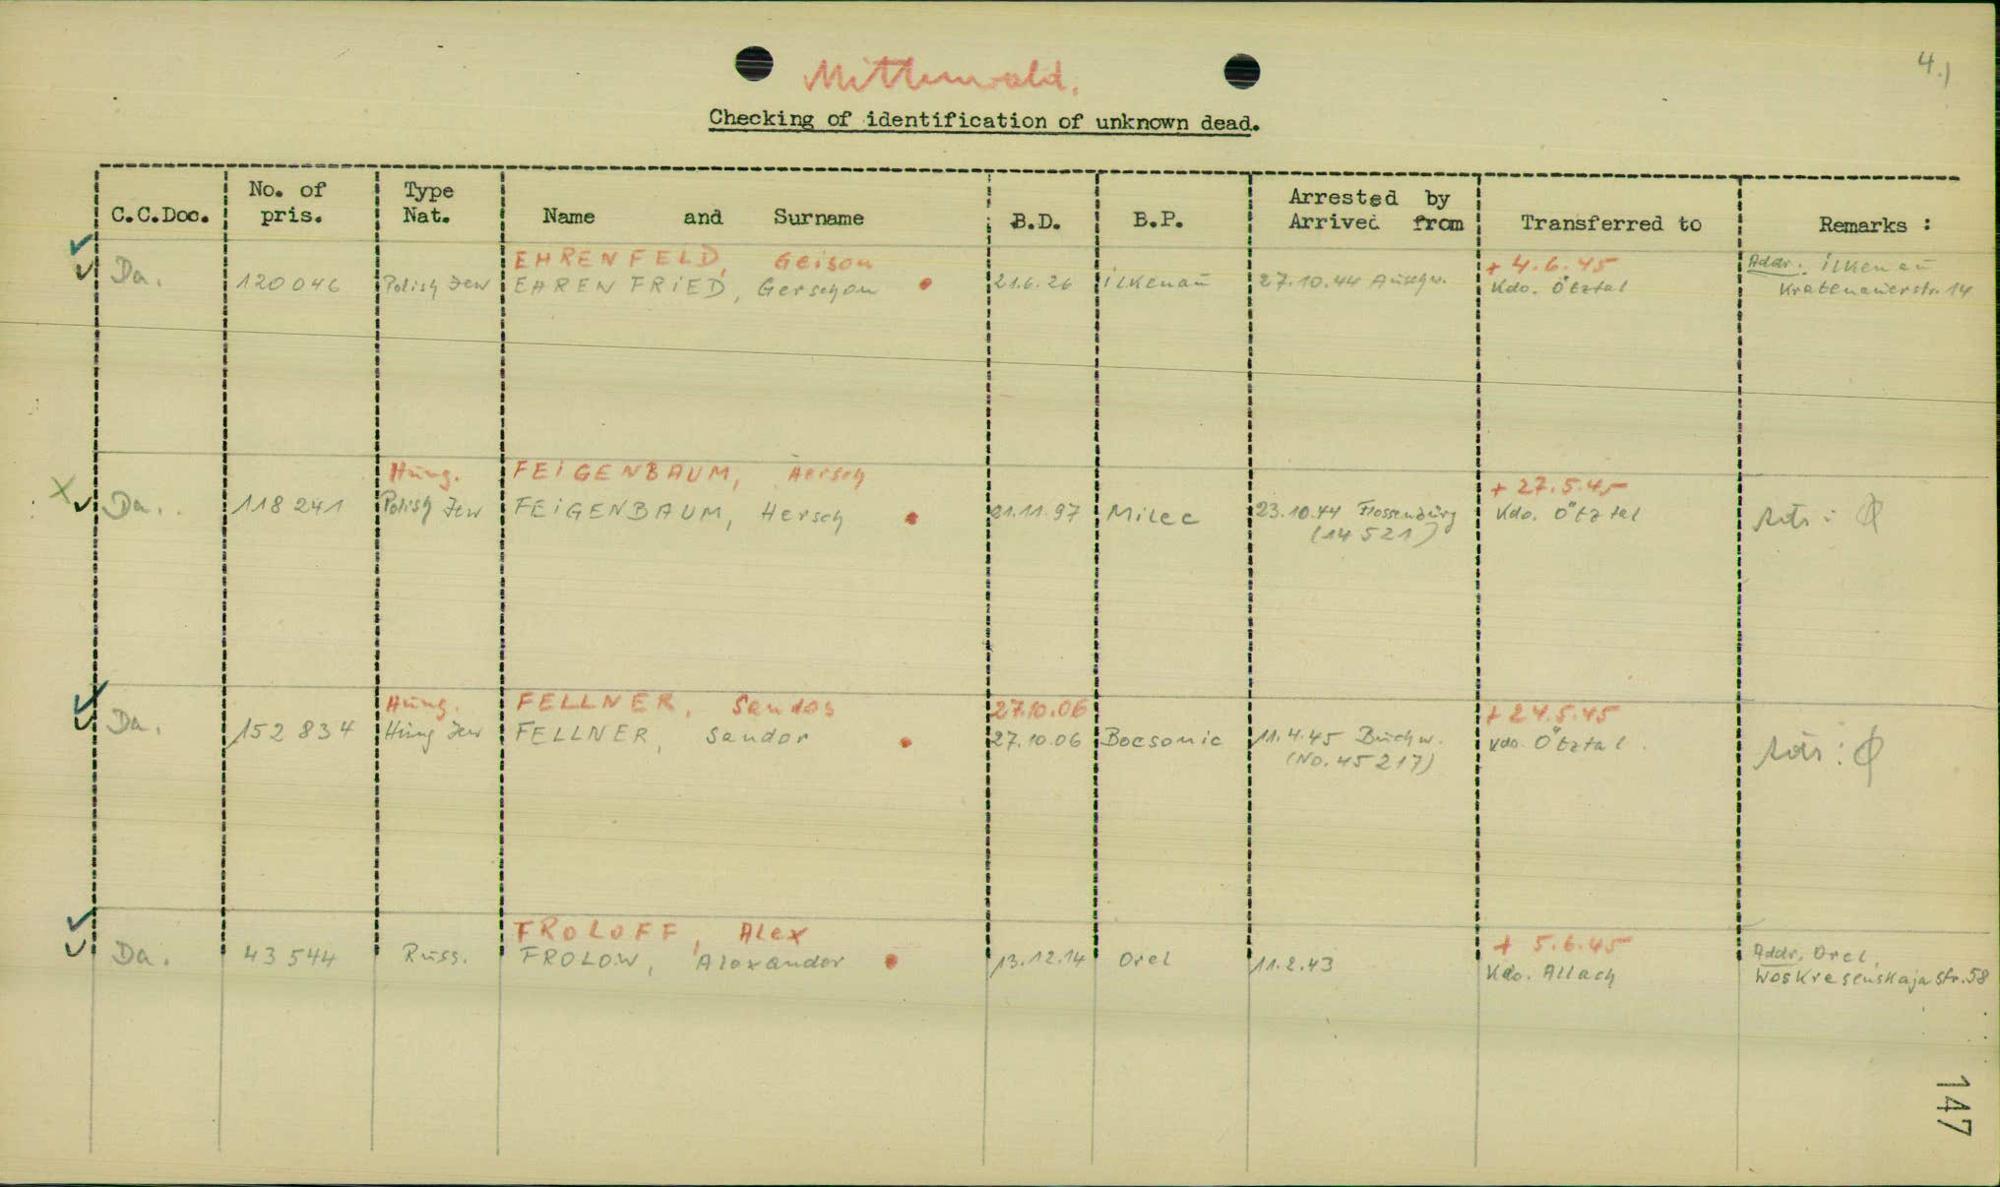 4.)
Mittenwald.
Checking of identification of unknown dead.
C.C.Doc. No. of pris. Type Nat. Name and Surname B.D. B.P. Arrested by Arrived from Transferred to Remarks :
EHRENFELD, Geison + 4.6.45 Addr. : ilkenau
Da. 120046 Polish Jew EHRENFRiED, Gerschon 21.6.26 ilkenau 27.10.44 Auschw. Kdo. Ötztal Kratenauerstr. 14
Hung. FEiGENBAUM, Hersch + 27.5.45
Da. 118241 Polish Jew FEiGENBAUM, Hersch 21.11.97 Milec 23.10.44 Flossenbürg Kdo. Ötztal
(14521)
Hung. FELLNER, Sandos 27.10.06 + 24.5.45
Da. 152834 Hung Jew FELLNER, Sandor 27.10.06 Bocsonic 11.4.45 Buchw. Kdo. Ötztal
(No. 45217)
FROLOFF, Alex + 5.6.45 Addr. Orel,
Da. 43544 Russ. FROLOW, Alexander 13.12.14 Orel 11.2.43 Kdo. Allach Woskresenskaja str. 58
147